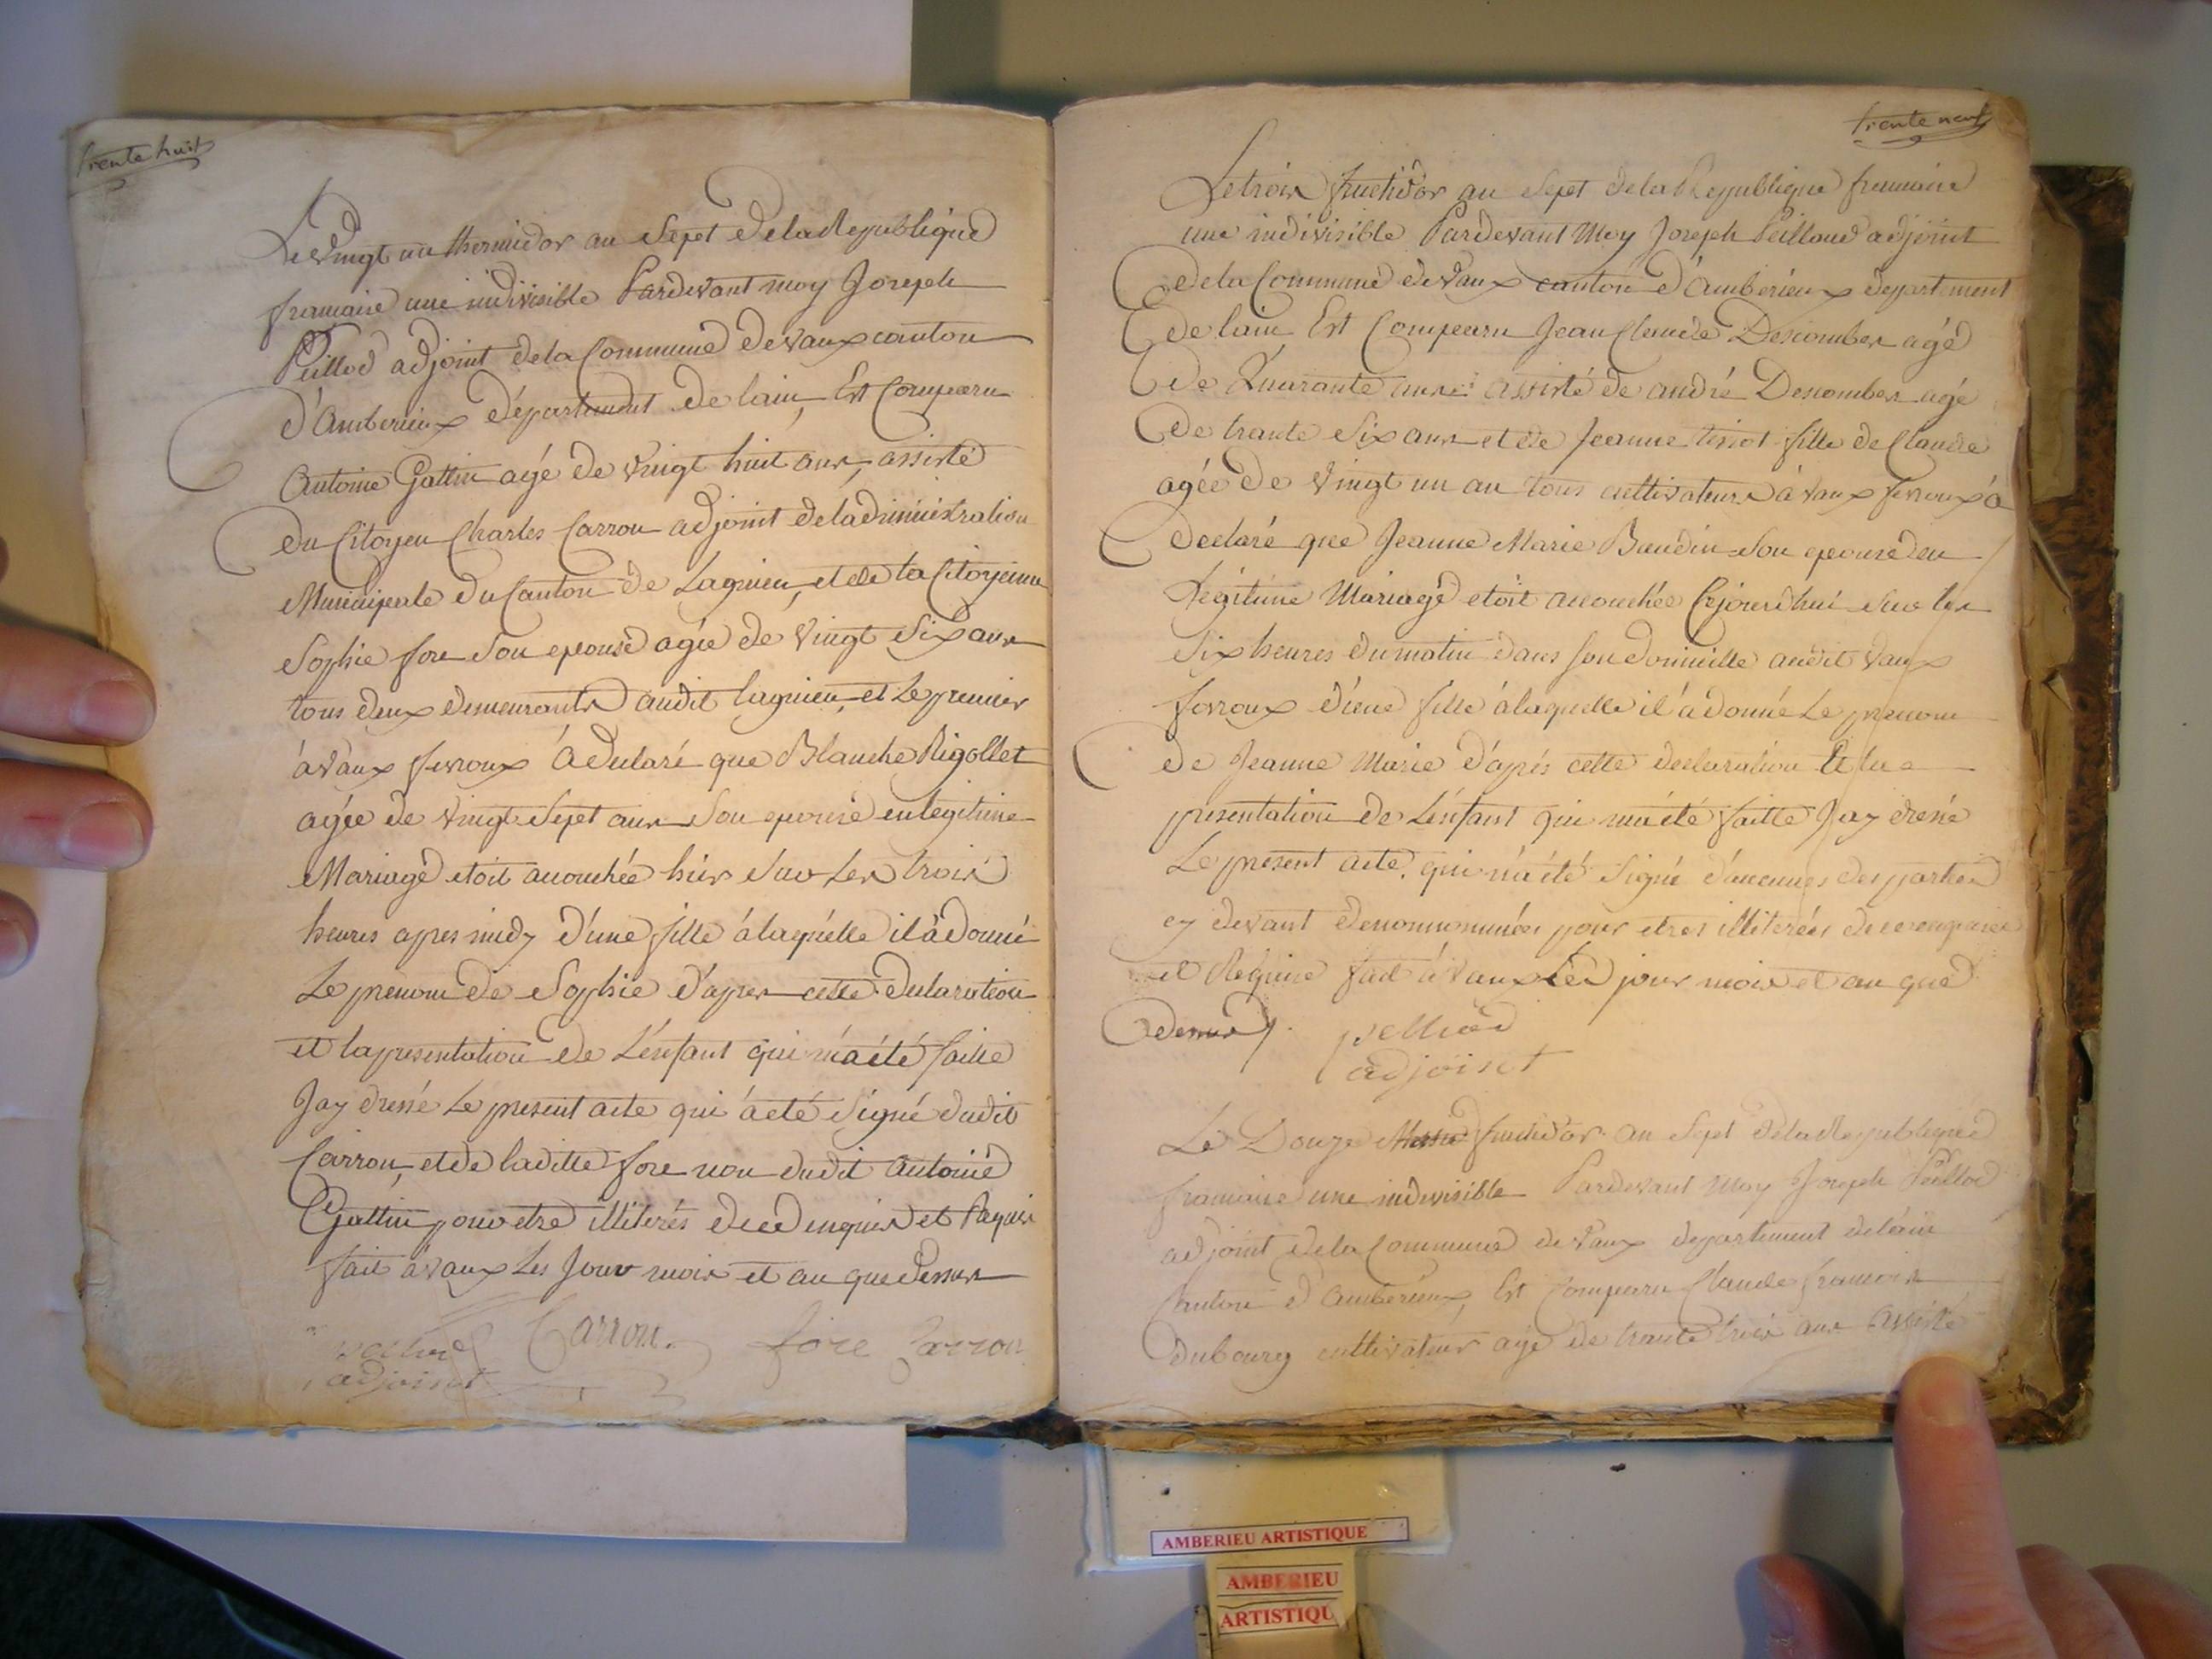 trente huit
Le Vingt un thermidor an Sept de la Republique
francaise une indivisible Pardevant moy Joseph
Peillod adjoint de la Commune de Vaux canton
d'Amberieux departement de lain, Est Comparu
Antoine Gattin agé de Vingt huit ans, assisté
du Citoyen Charles Carron adjoint deladministration
Municipale du Canton de Lagnieu, et de la Citoyenne
Sophie fore Son epouse agée de Vingt Six ans
tous deux demeurants audit lagnieu, et Le premier
à Vaux fevroux à declaré que Blanche Rigollet
agée de Vingt Sept ans Son epouse en legitime
Mariage etoit accouchée hier Sur Les trois
heures apres midy d'une fille à laquelle il à donné
Le prenom de Sophie d'apres cette declaration
et la presentation de L'enfant qui m'a été faitte
Jay dressé Le present acte qui à eté Signé dudit
Carron, et de laditte fore non dudit Antoine
Gattin pour etre illiterés de ce enquis et Requis
fait à Vaux Les Jour mois et an que dessus
peillod Carron. fore Carron
adjoint
trente neuf
Le trois fructidor an Sept de la Republique francaise
une indivisible Pardevant Moy Joseph Peilloud adjoint
de la Commune de Vaux canton d'Amberieux departement
de lain Est Comparu Jean Claude Descombes agé
de Quarante ans assisté de andré Descombes agé
de trante Six ans et de Jeanne tissot fille de Claude
agée de Vingt un an tous cultivateurs à Vaux fevroux à
declaré que Jeanne Marie Baudin Son epouse en
Legitime Mariage etoit accouchée Cejourd'hui Sur les
Six heures du matin dans Son domicille audit Vaux
fevroux d'une fille à laquelle il à donné Le prenom
de Jeanne Marie d'aprés cette declaration et la
presentation de L'enfant qui m'a été faitte Jay dressé
Le present acte, qui n'a été Signé d'aucunes des parties
cy devant denommées pour etres illiterées de ce enquises
et Requise fait à Vaux Les jour mois et an que
dessus peilliod
adjoint
Le Douze fructidor an Sept de la Republique
francaise une indivisible Pardevant Moy Joseph Peillod
adjoint de la Commune de Vaux departement de lain
Canton d'Amberieux, Est Comparu Claude francois
Dubourg cultivateur agé de trante trois ans assisté
AMBERIEU ARTISTIQUE
AMBERIEU
ARTISTIQU